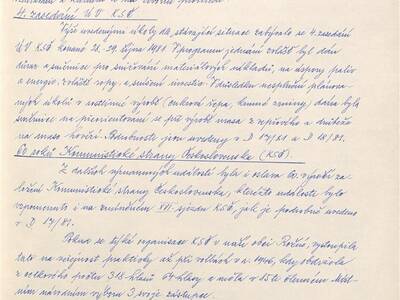 4. zasedání ÚV KSČ
Výše uvedenými úkoly do stávající situace zabývalo se 4. zasedání
ÚV KSČ konané 28.-29. října 1981. V programu jednání zvláště byl dán
důraz a směrnice pro snižování materiálových nákladů, na úspory paliv
a energie, zvláště ropy, a snížení investic. V důsledku nesplnění pláno-
vaných úkolů v rostlinné výrobě (cukrová řepa, krmné zrniny) dána byla
směrnice na přeorientování se při výrobě masa z vepřového a drůbežího
na maso hovězí. Podrobnosti jsou uvedeny v D 17/81 a D 18/81.
60 roků Komunistické strany Československa (KSČ).
Z dalších významných událostí byla i oslava 60. výročí za-
ložení Komunistické strany Československa, kteréžto události bylo
vzpomenuto i na XVI. sjezdu KSČ, jak je podrobně uvedeno
v D 17/81.
Pokud se týká organizace KSČ v naší obci Ročné, vystoupila
tato na veřejnost prakticky až při volbách r. 1946, kdy obdržela
z celkového počtu 318 hlasů 64 hlasy a měla v 15ti členném Míst-
ním národním výboru 3 svoje zástupce.